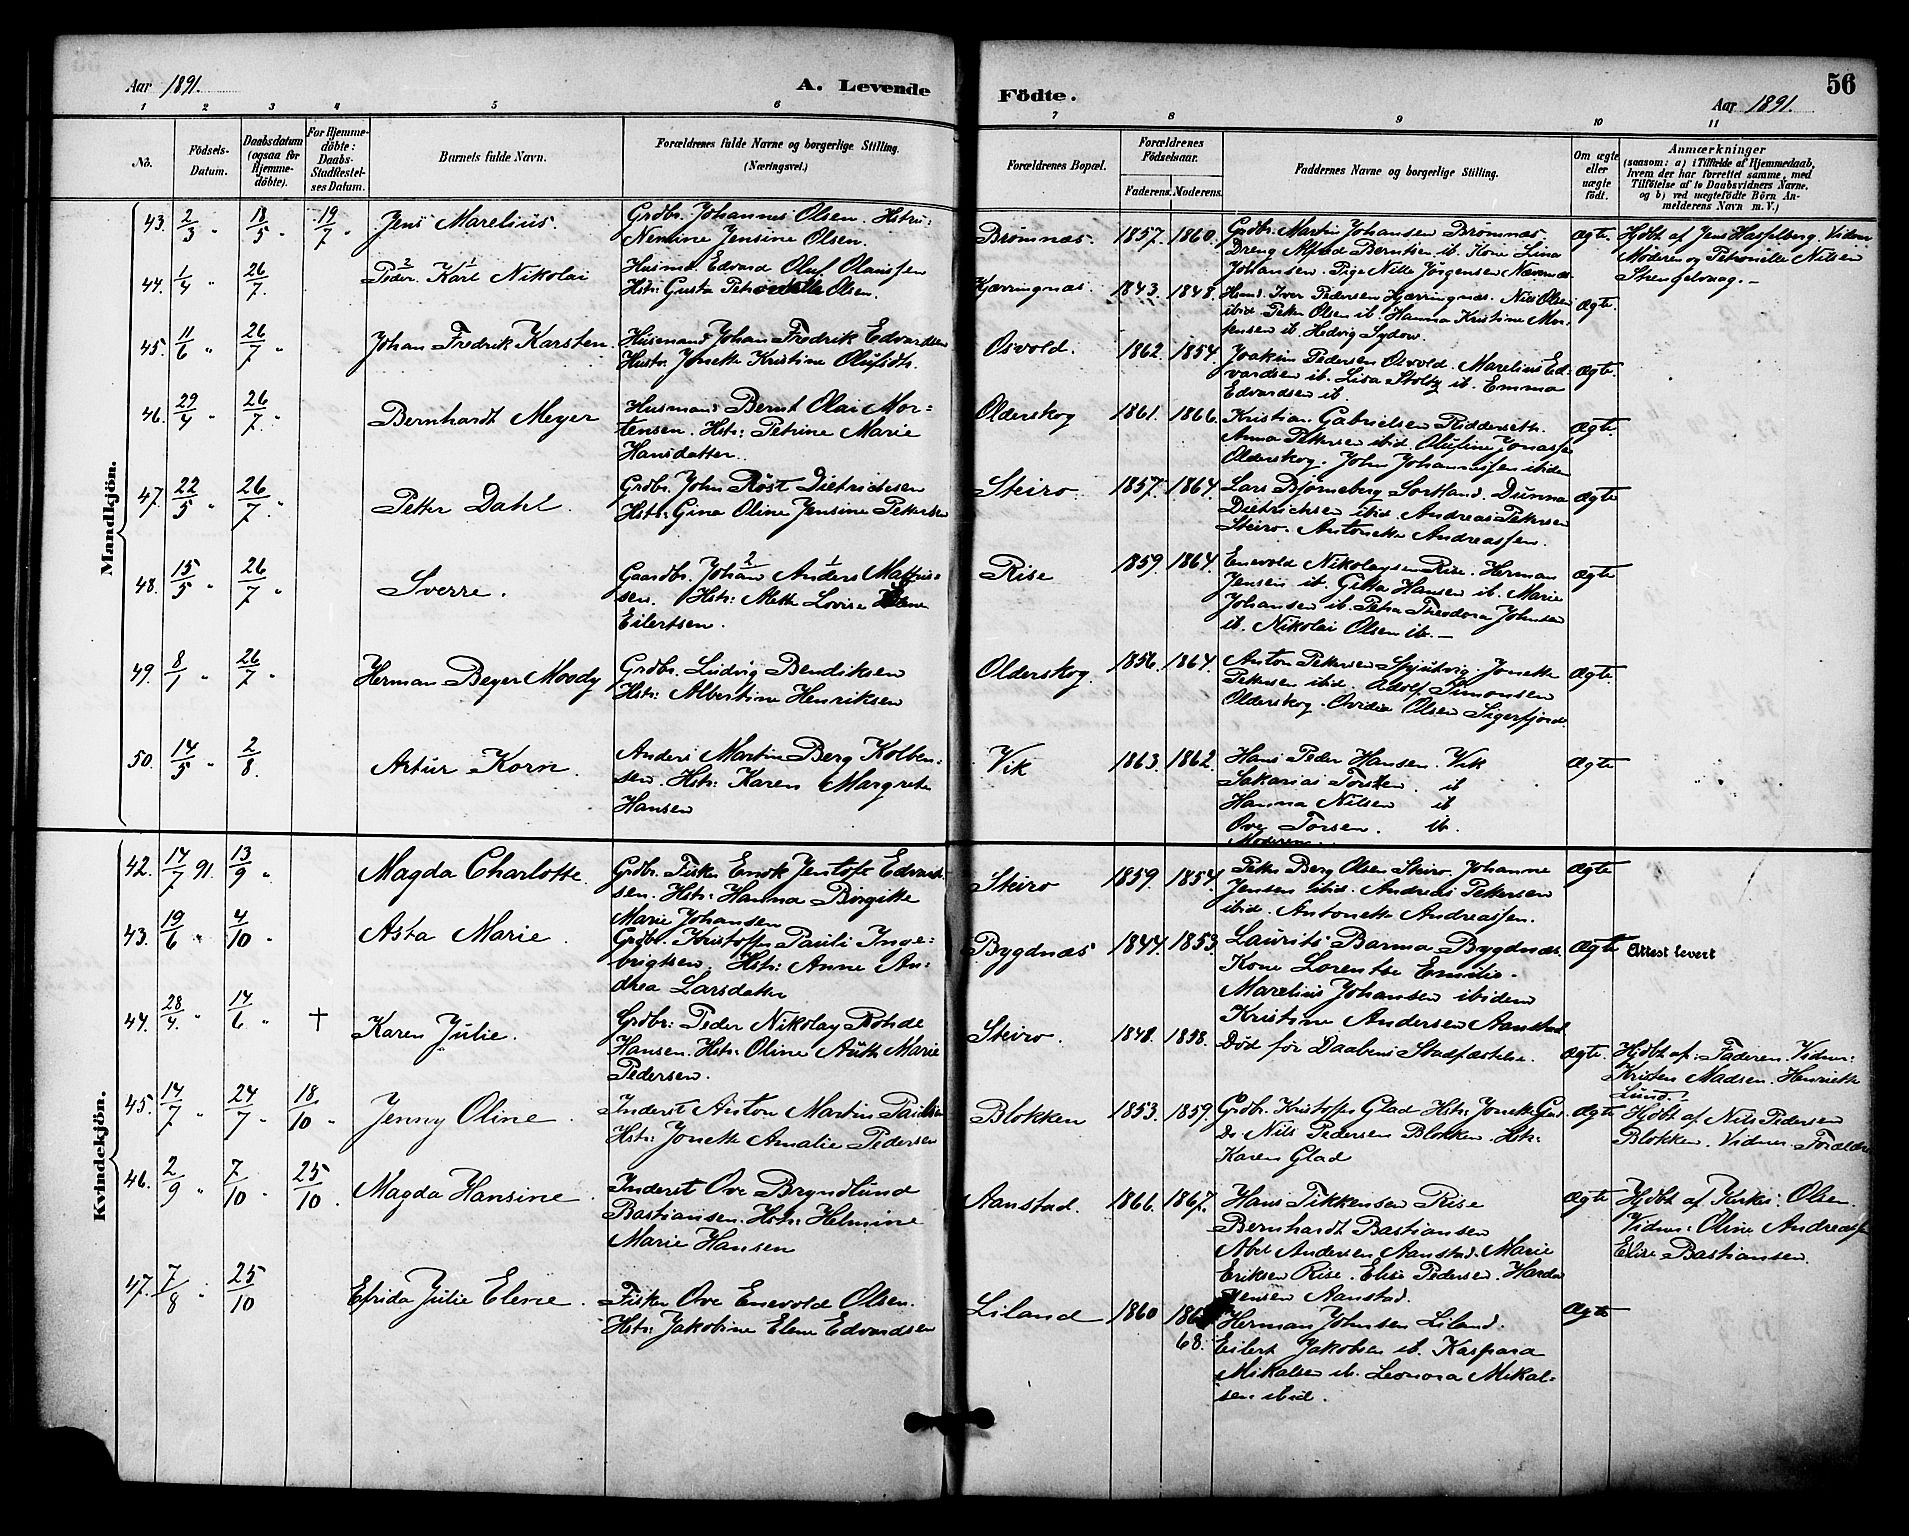 56
Aar 1891.
A. Levende
Födte.
Aar 1891.
1 2 3 4 5 6 7 8 9 10 11
No.
Födsels-
Datum.
Daabsdatum
(ogsaa for
Hjemme-
döbte).
For Hjemme-
döbte:
Daabs-
Stadfæstel-
ses Datum.
Barnets fulde Navn.
Forældrenes fulde Navne og borgerlige Stilling.
(Næringsvei.)
Forældrenes Bopæl.
Forældrenes
Födselsaar.
Faderens. Moderens.
Faddernes Navne og borgerlige Stilling.
Om ægte
eller
uægte
födt.
Anmærkninger
(saasom: a) i Tilfælde af Hjemmedaab,
hvem der har forrettet samme, med
Tilföielse af to Daabsvidners Navne,
og b) ved uægtefödte Börn An-
melderens Navn m. V.)
Mandkjön.
43. 2/3 " 18/5 " 19/7 " Jens Marelius.
Grdbr. Johannes Olsen. Hstru:
Nemine Jensine Olsen.
Brömnæs. 1857. 1860.
Grdbr. Martin Johansen Brömnæs.
Dreng Alfred Berntsen ib. Kone Lina
Johansen. Pige Nille Jörgensen
Ægte.
Hjdbt af Jens Hasselberg. Vidner
Moderen og Petronelle Nilsen
44. 1/4 " 26/7. Peder 2 Karl 1 Nikolai
Husmd. Edvard Oluf Olaussen
Hstr: Gusta Petronelle Olsen.
Kjærringnæs. 1843. 1848.
Husmd. Iver Pedersen Kjærringnæs. Nils Olsen
ibid Peter Olsen ib. Hanna Kristine Mor-
tensen ib. Hedvig Sydow.
Ægte.
45. 11/6 " 26/7 " Johan Fredrik Karsten.
Husmand Johan Fredrik Edvardsen
Hustr. Jonette Kristine Olufsdtr.
Osvold. 1862. 1854.
Joakim Pedersen Osvold. Marelius Ed-
vardsen ib. Lisa Stoltz ib. Emma
Edvardsen ib.
Ægte.
46. 29/4 " 26/7. " Bernhardt Meyer
Husmand Bernt Olai Mor=
tensen. Hstr: Petrine Marie
Hansdatter.
Olderskog 1861. 1866.
Kristian Gabrielsen Ridderseth.
Anna Pettersen ibid. Olufine Jonassen
Olderskog. John Johannessen ibidem
Ægte.
47. 22/5 " 26/7 " Petter Dahl.
Grdbr. John Röst Dietrichsen
Hstr: Gina Oline Jensine Pettersen
Steiro. 1857. 1864.
Lars Bjørneberg Sortland. Dunna
Dietrichsen ibid. Andreas Pettersen
Steiro. Antonette Andreassen.
Ægte
48. 15/5 " 26/7 " Sverre.
Gaardbr. Johan 2 Anders 1 Mathis=
sen. Hstr: Mette Lovise
Eilertsen.
Rise 1859. 1864.
Enevold Nikolaysen Rise. Herman
Jensen ib. Gitta Hansen ib. Marie
Johansen ib. Petra Theodora Johnsen
ib. Nikolai Olsen ib.—
Ægte
49. 8/1 " 26/7 " Herman Beyer Moody
Grdbr. Ludvig Bendiksen
Hstr: Albertine Henriksen
Olderskog. 1856. 1864.
Anton Pettersen Spjutvig. Jonette
Pettersen ibid. Adolf Simonsen
Olderskog. Ovidia Olsen Sigerfjord
Ægte.
50. 14/5 " 2/8. Artur Korn.
Anders Martin Berg Kolben-
sen. Hstr: Karen Margrete
Hansen
Vik 1863. 1862.
Hans Peder Hansen. Vik
Sakarias Torsten. ib
Hanna Nilsen ib
Ove Torsen. ib.
Moderen.
Ægte
Kvindekjön.
42. 14/7 91. 13/9 " Magda Charlotte.
Grdbr. Fisker Enok Jentoft Edvard-
sen. Hstr: Hanna Birgitte
Marie Johansen
Steiro 1859. 1854.
Peter Berg Olsen Steiro. Johanne
Jensen ibid. Andreas Pettersen
ibid. Antonette Andreassen.
Ægte
43. 19/6 " 4/10 " Asta Marie.
Grdbr. Kristoffer Pauli Inge=
brigtsen. Hstr: Anne An=
drea Larsdatter
Bygdnæs 1844. 1853.
Laurits Barma Bygdnæs.
Kone Lorentse Emilie.
Marelius Johansen ibidem
Kristine Andersen Aanstad.
Ægte
Attest levert
44. 28/4. " 14/6 " † Karen Julie.
Grdbr: Peder Nikolay Rohde
Hansen. Hstr: Oline Marie
Pedersen.
Steiro. 1848. 1858.
Död för Daabens Stadfæstelse.
Ægte.
Hjdbt af: Faderen. Vidner:
Kristen Madsen. Henriette
Lund.
45. 14/7 " 24/7 " 18/10 " Jenny Oline.
Inderst Anton Martin
Hstr: Jonette Amalie Pedersen
Blokken 1853. 1859.
Grdbr. Kristoffer Glad Hstr: Jonette Glad
Do Nils Pedersen Blokken. Hstr:
Karen Glad
Ægte
Hjdbt af Nils Pedersen
Blokken. Vidner. Forældre
46. 2/9 " 7/10 " 25/10. Magda Hansine.
Inderst Ove Bryndlund
Bastiansen. Hstr: Helmine
Marie Hansen
Aanstad. 1866. 1867.
Hans Fikkensen Rise
Bernhardt Bastiansen
Abel Andersen Aanstad. Marie
Eriksen Rise. Elise Pedersen.
Jensen Aanstad.
Ægte
Hjdbt af Kirkes: Olsen.
Vidner: Oline Andreassen
Elise Bastiansen.
47. 7/8 " 25/10 Efrida Julie Elene.
Fisker Ove Enevold Olsen.
Hstr: Jakobine Elene Edvardsen
Liland 1860
68.
Herman Johnsen Liland.
Eilert Jakobsen ib. Kaspara
Mikalsen ib. Leonora Mikal-
sen ibid.
Ægte